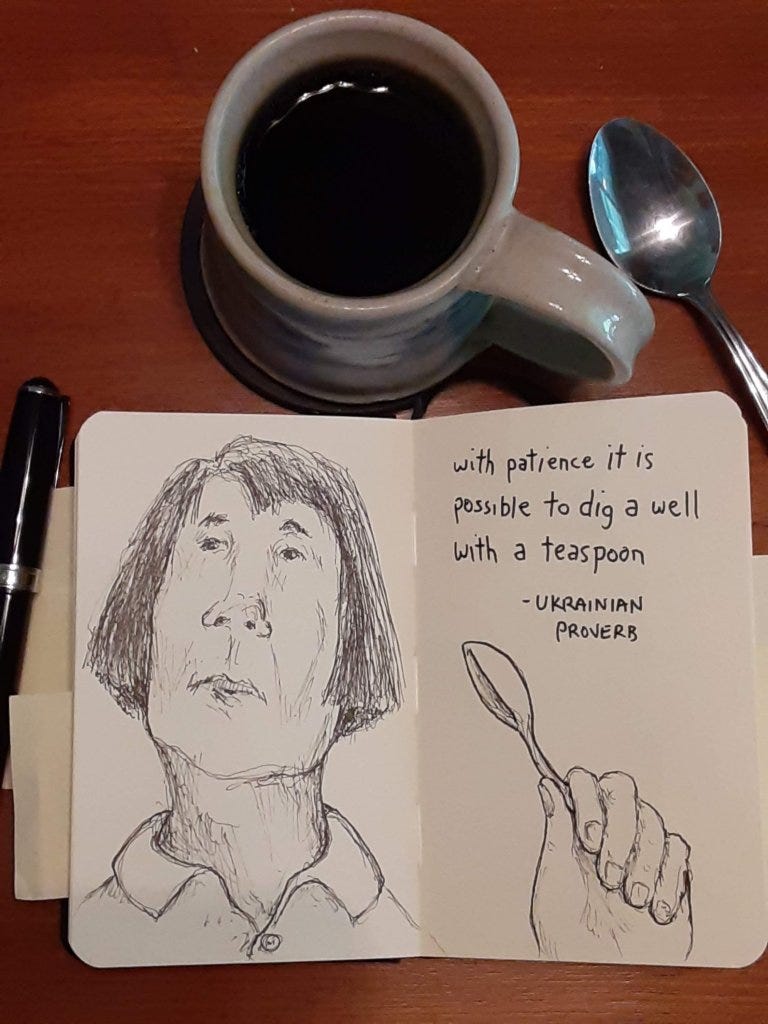 with patience it is
possible to dig a well
with a teaspoon
-UKRAINIAN
PROVERB